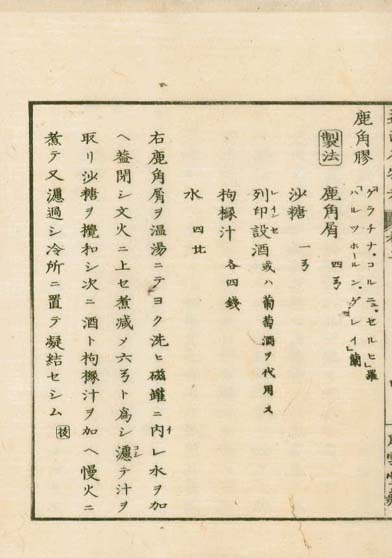 鹿角膠
「ゲラチナ、コルニュ、セルヒ」羅
「ハルツホールン、ゲレイ」蘭
製法
鹿角屑 四ヲ
沙糖 一ヲ
列印設酒 レインセ 或ハ葡萄酒ヲ代用ス
拘櫞汁 各四錢
水 四廿
右鹿角屑ヲ温湯ニテヨク洗ヒ磁罐ニ内レ水ヲ加
ヘ蓋閉シ文火ニ上セ煮減メ六ヲト為シ濾テ汁ヲ
取リ沙糖ヲ攪和シ次ニ酒ト拘櫞汁ヲ加ヘ慢火ニ
煮テ又濾過シ冷所ニ置テ凝結セシム 扶